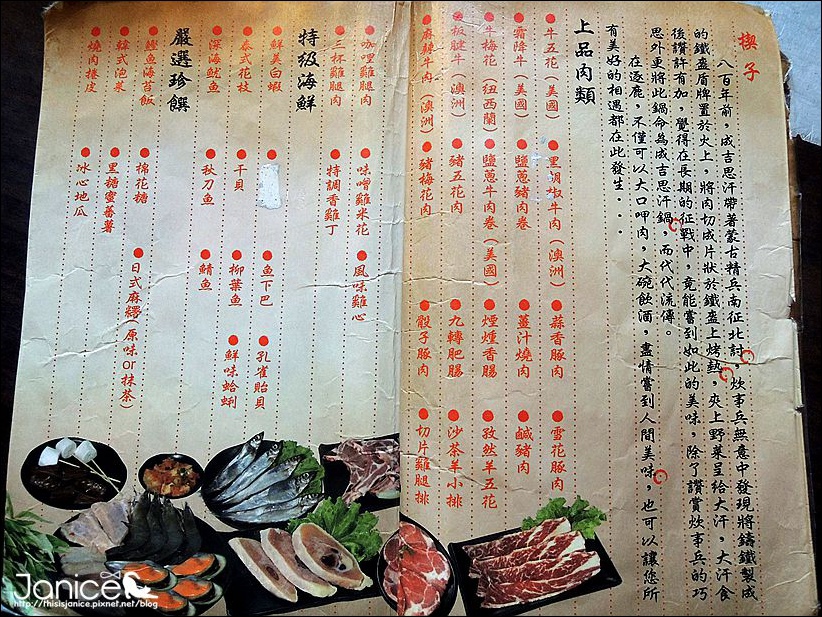 楔子
八百年前，成吉思汗帶著蒙古精兵南征北討，炊事兵無意中發現將鑄鐵製成
的鐵盔盾牌置於火上，將肉切成片狀於鐵盔上烤熱，夾上野菜呈給大汗，大汗食
後讚許有加，覺得在長期的征戰中，竟能嘗到如此的美味，除了讚賞炊事兵的巧
思外更將此鍋命為成吉思汗鍋，而代代流傳。
在逐鹿，不僅可以大口呷肉，大碗飲酒，盡情嘗到人間美味，也可以讓您所
有美好的相遇都在此發生...
上品肉類
牛五花（美國） 黑胡椒牛肉（澳洲） 蒜香豚肉 雪花豚肉
霜降牛（美國） 鹽蔥豬肉卷 薑汁燒肉 鹹豬肉
牛梅花（紐西蘭） 鹽蔥牛肉卷（美國） 煙燻香腸 孜然羊五花
板腱牛（澳洲） 豬五花肉 九轉肥腸 沙茶羊小排
麻辣牛肉（澳洲） 豬梅花肉 骰子豚肉 切片雞腿排
咖哩雞腿肉 味噌雞米花 風味雞心
三杯雞腿肉 特調香雞丁
特級海鮮
鮮美白蝦 魚下巴 孔雀貽貝
泰式花枝 干貝 柳葉魚 鮮味蛤蜊
深海魷魚 秋刀魚 鯖魚
嚴選珍饌
鰹魚海苔飯 棉花糖 日式麻糬（原味or抹茶）
韓式泡菜 黑糖蜜蕃薯
燒肉捲皮 冰心地瓜
Janice
http://thisisjanice.pixnet.net/blog